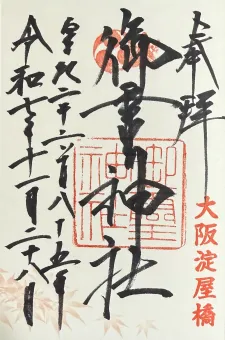 奉拝
御霊神社
御霊神社
皇紀二千六百八十五年
令和七年十一月二十八日
大阪淀屋橋